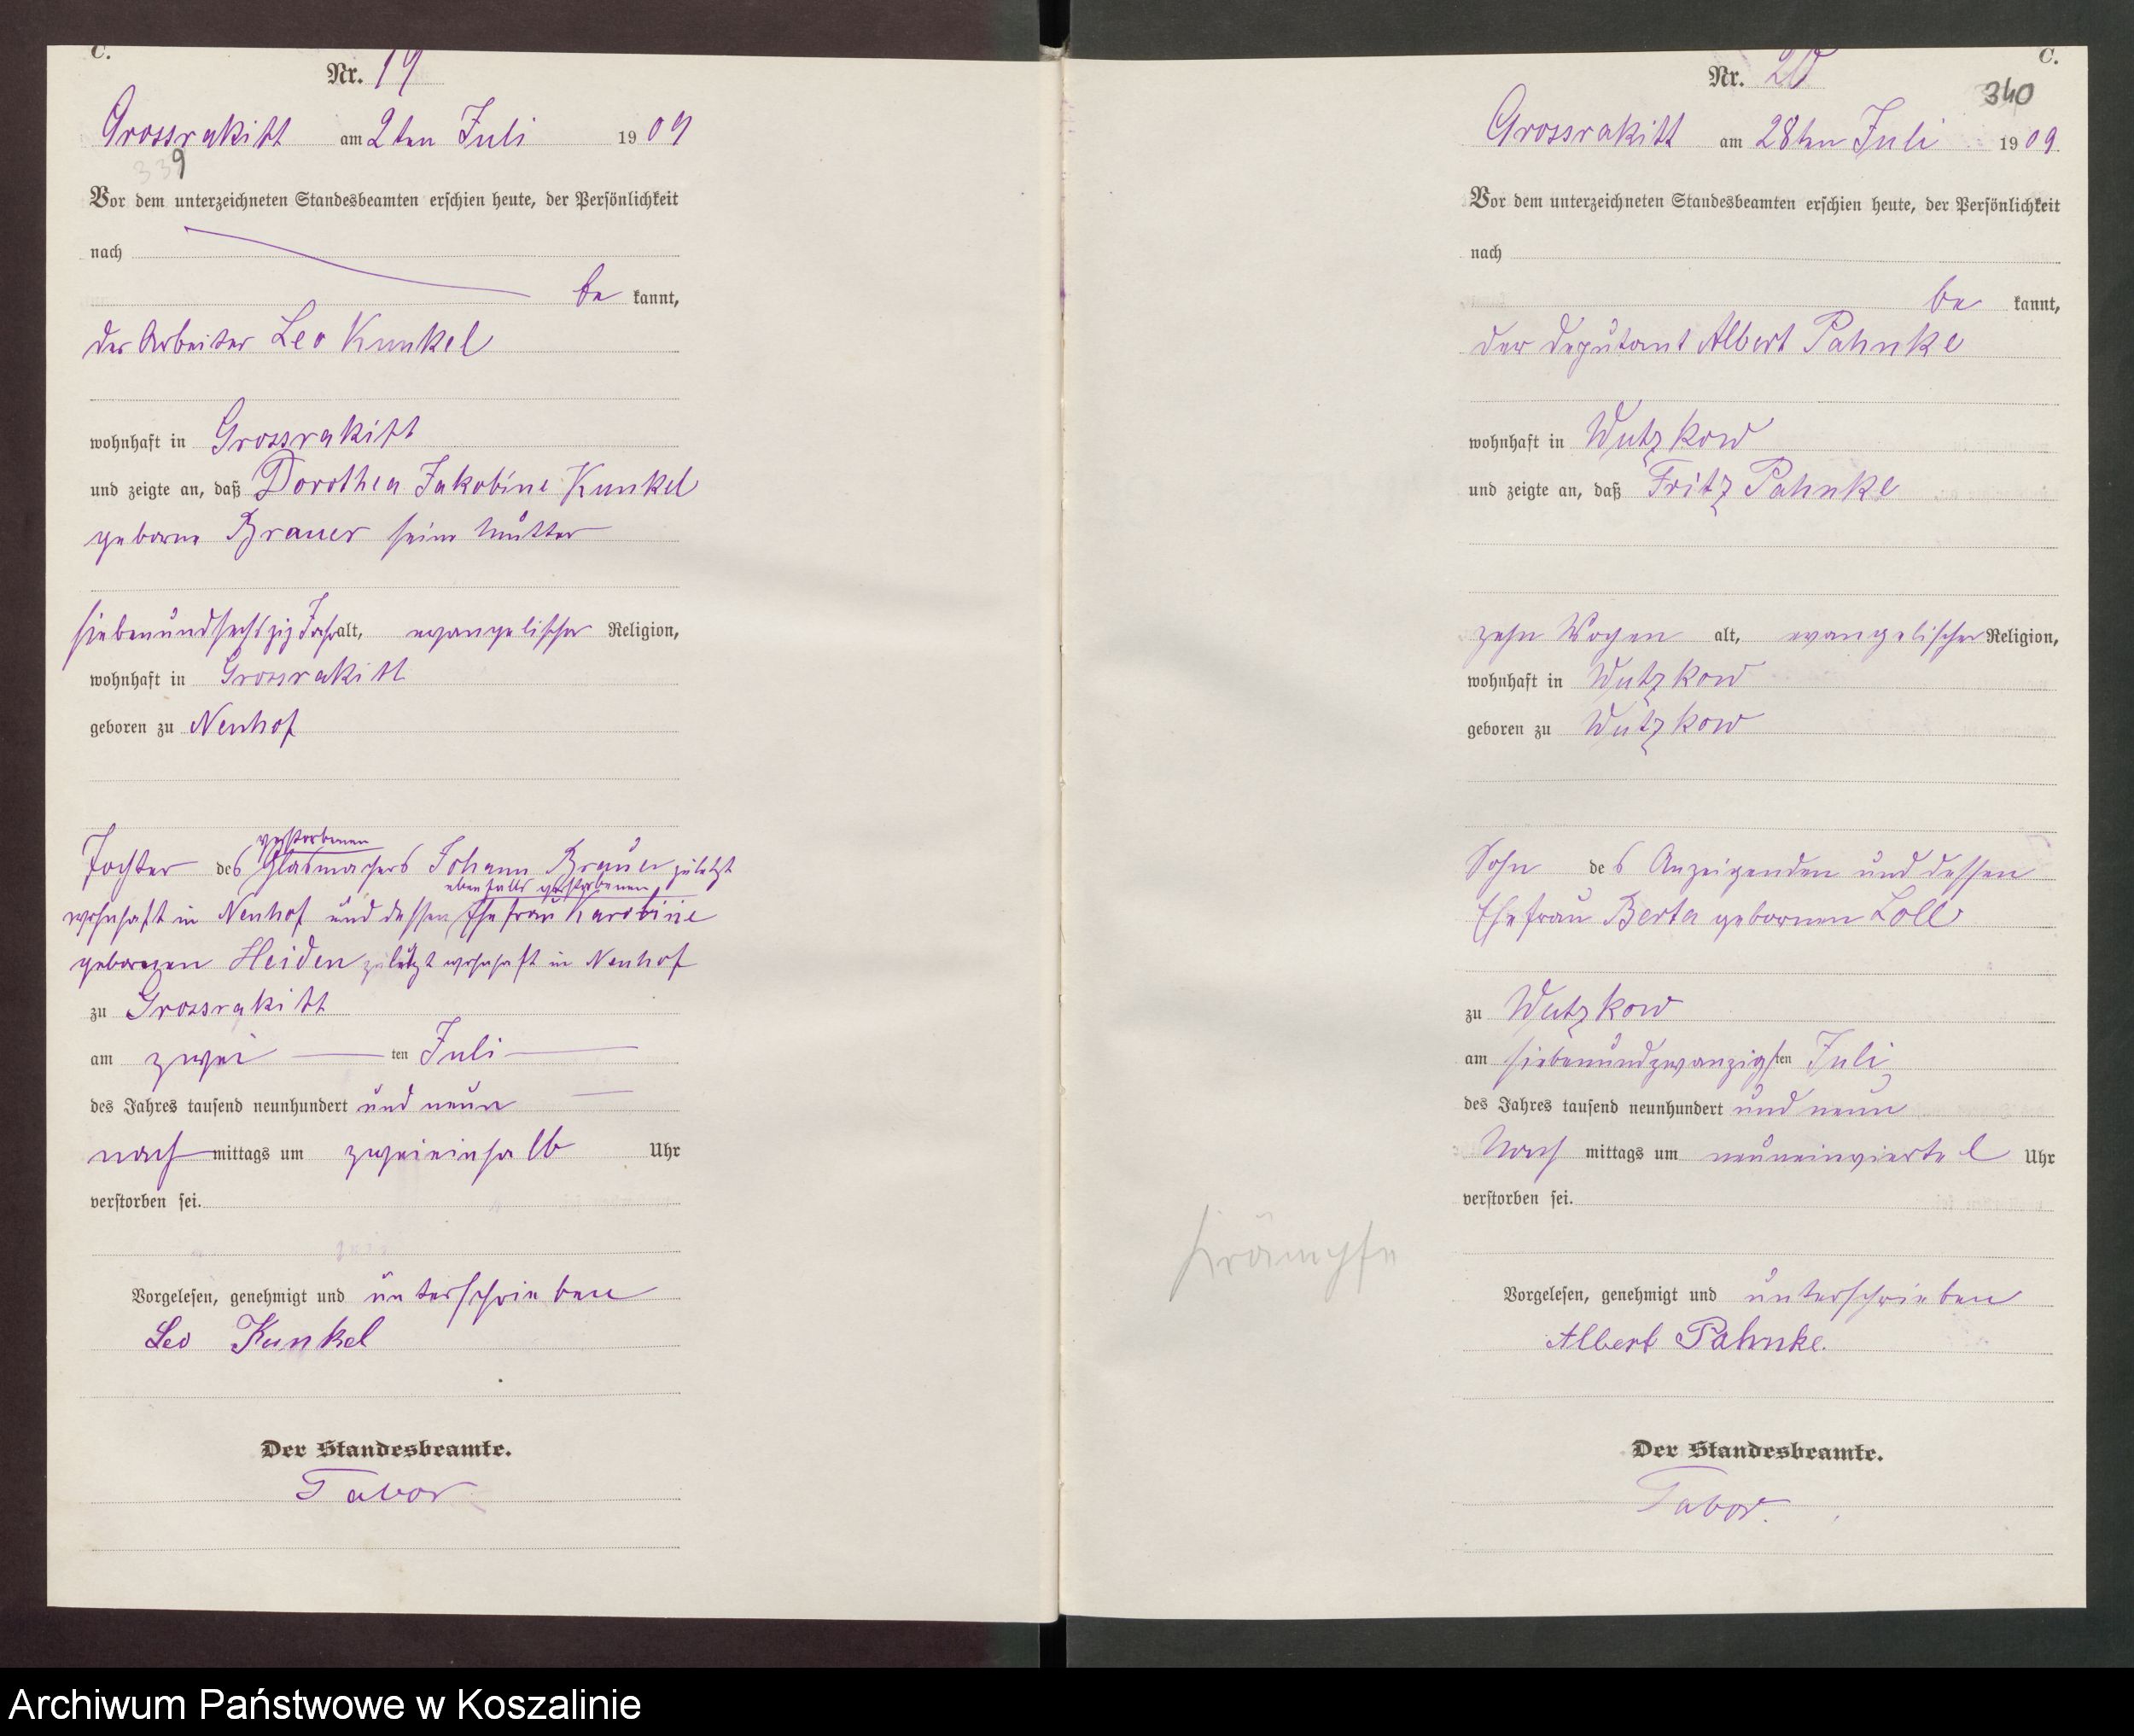 C.
Nr. 19
Grossrakitt am 2ten Juli 1909
339
Vor dem unterzeichneten Standesbeamten erschien heute, der Persönlichkeit
nach
be kannt,
der Arbeiter Leo Kunkel
wohnhaft in Grossrakitt
und zeigte an, daß Dorothea Jakobine Kunkel
geborne Brauer seine Mutter
siebenundsechszig Jahr alt, evangelischer Religion,
wohnhaft in Grossrakitt
geboren zu Neuhof
verstorbenen
Tochter des Glasmachers Johann Brauer zuletzt
ebenfalls verstorbenen
wohnhaft in Neuhof und dessen Ehefrau Karoline
gebornen Heiden zuletzt wohnhaft in Neuhof
zu Grossrakitt
am zwei ten Juli
des Jahres tausend neunhundert und neun
nach mittags um zweieinhalb Uhr
verstorben sei.
Vorgelesen, genehmigt und unterschrieben
Leo Kunkel
Der Standesbeamte.
Tabor
C.
Nr. 20
340
Grossrakitt am 28ten Juli 1909.
Vor dem unterzeichneten Standesbeamten erschien heute, der Persönlichkeit
nach
be kannt,
der Deputant Albert Pahnke
wohnhaft in Wutzkow
und zeigte an, daß Fritz Pahnke
zehn Wochen alt, evangelischer Religion,
wohnhaft in Wutzkow
geboren zu Wutzkow
Sohn des Anzeigenden und dessen
Ehefrau Berta gebornen Loll
zu Wutzkow
am siebenundzwanzigsten Juli
des Jahres tausend neunhundert und neun
Nach mittags um neuneinviertel Uhr
verstorben sei.
Krämpfe
Vorgelesen, genehmigt und unterschrieben
Albert Pahnke.
Der Standesbeamte.
Tabor.
Archiwum Państwowe w Koszalinie